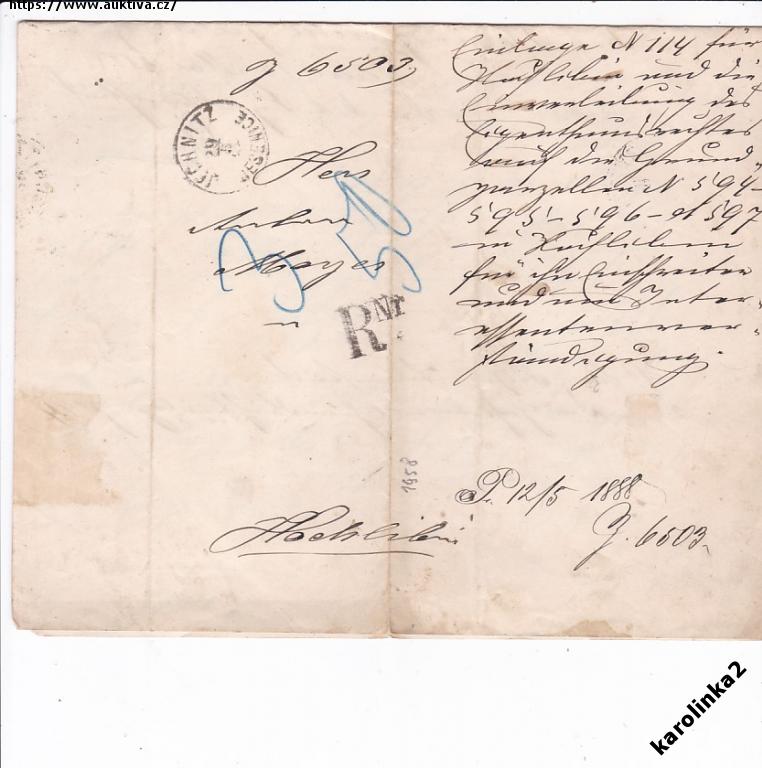 https://www.auktiva.cz/
Z 6503
JECHNITZ
JESENICE
Herr
Anton
Mayer
in
3 50
RNr
Hochlibin
Einlage N 114 für
Hochlibin und die
Einverleibung des
Eigenthumsrechtes
auf die Grund„
parzellen N 594–
595–596– & 597
in Hochlibin
für ihn Einschreiten
und um Inter„
essentenver„
ständigung.
1958
P. 12/5 1888
Z. 6503.
karolinka2